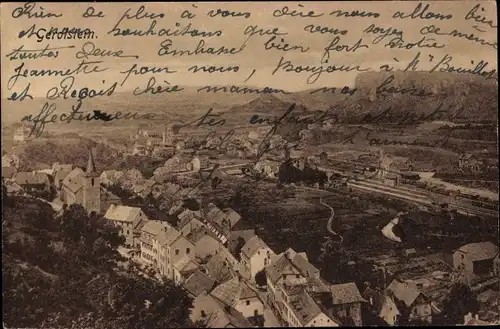 Gerolstein.
Rien de plus à vous dire nous allons bien
et nous souhaitons que vous soyez de même
toutes Deux Embrasse bien fort Notre
Jeannette pour nous, Bonjour à Mr Bouillet
et Reçois chère maman nos baisers
affectueux tes enfants